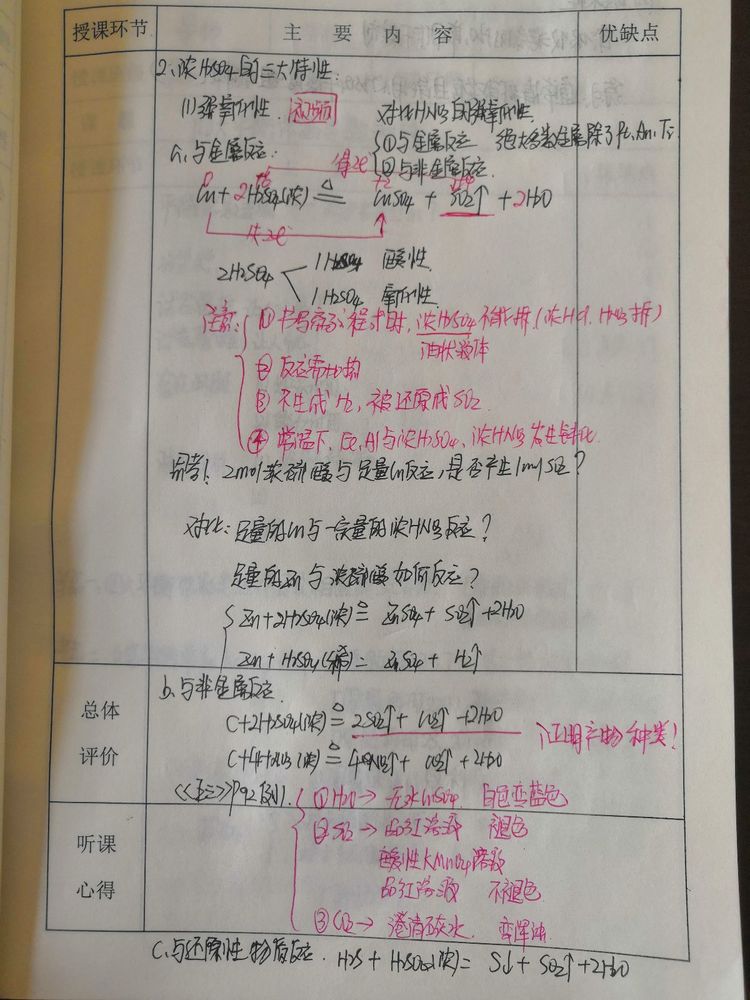 授课环节 主要内容 优缺点
2.浓H2SO4的三大特性:
(1)强氧化性. 视频 对比HNO3的强氧化性
a.与金属反应: ①与金属反应 绝大多数金属除了Pt、Au、Ti
得2e⁻ ②与非金属反应
0 +6 +2 +4
Cu + 2H2SO4(浓) △= CuSO4 + SO2↑ + 2H2O
失2e⁻
2H2SO4 1H2SO4 酸性
1H2SO4 氧化性
注意: ①书写离子方程式时,浓H2SO4不能拆(浓HCl、HNO3拆)
油状液体
②反应需加热
③不生成H2,被还原成SO2
④常温下,Fe、Al与浓H2SO4、浓HNO3发生钝化
思考: 2mol浓硫酸与足量Cu反应,是否产生1molSO2?
对比:足量的Cu与一定量的浓HNO3反应?
足量的Zn与浓硫酸如何反应?
Zn+2H2SO4(浓) △= ZnSO4 + SO2↑ +2H2O
Zn + H2SO4(稀) = ZnSO4 + H2↑
总体评价
b.与非金属反应.
C+2H2SO4(浓) △= 2SO2↑+ CO2↑ +2H2O 证明产物种类!
C+4HNO3(浓) △= 4NO2↑+ CO2↑ +2H2O
P92例1.
听课心得
①H2O→ 无水CuSO4 白色变蓝色
②SO2→ 品红溶液 褪色
酸性KMnO4溶液
品红溶液 不褪色
③CO2→ 澄清石灰水 变浑浊
C.与还原性物质反应. H2S + H2SO4(浓)= S↓ + SO2↑ +2H2O